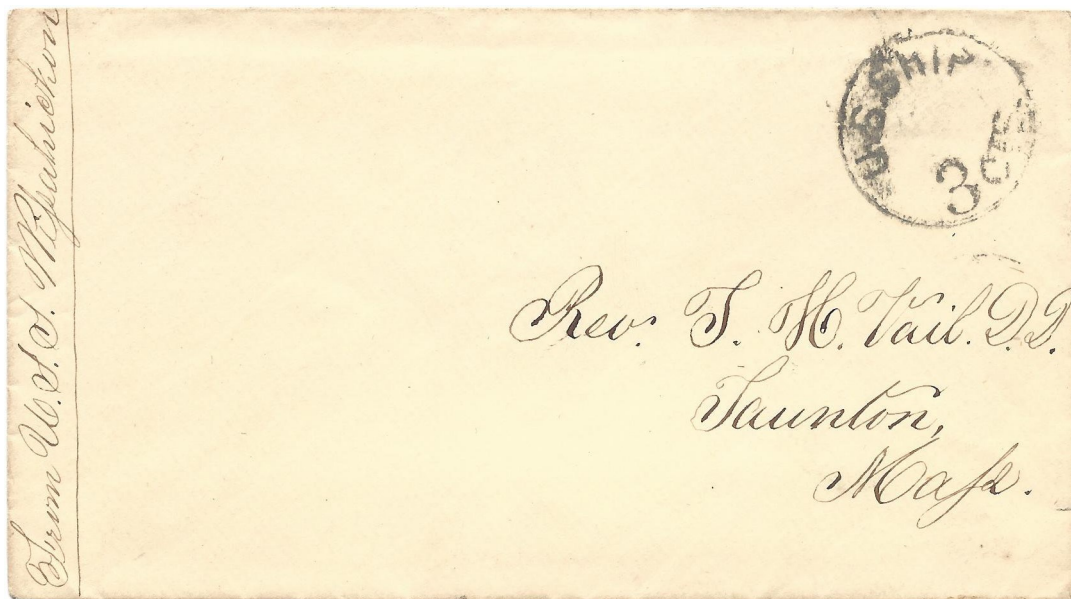 From U.S.S. Wissahickon
U.S. SHIP.
3 CTS
Rev. T. H. Vail. D.D.
Taunton,
Maſs.